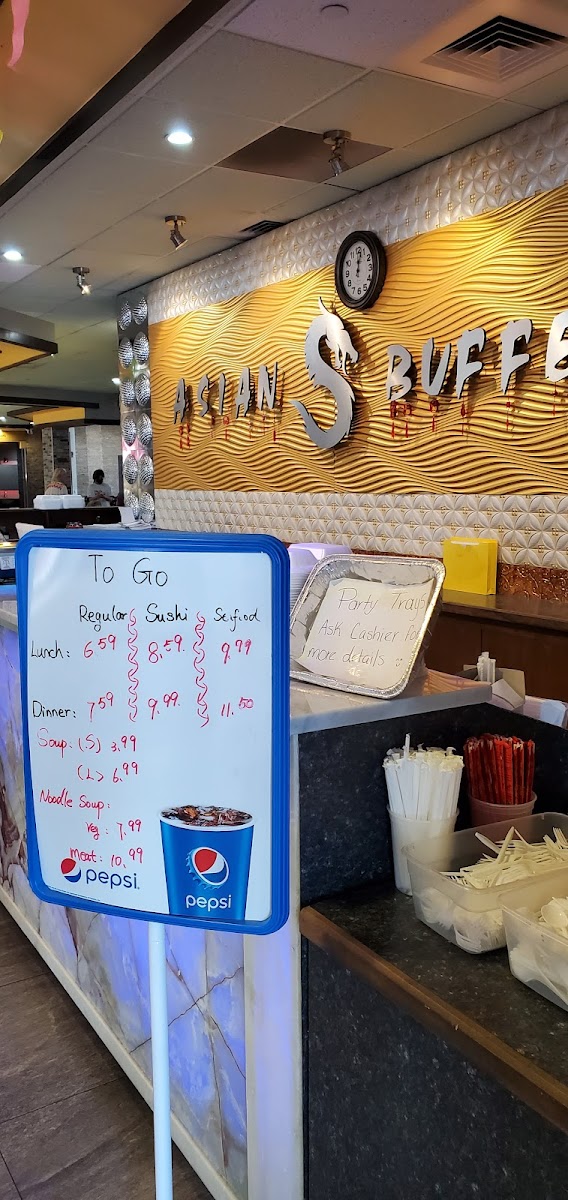 ASIAN BUFFE
To Go
Regular Sushi Seafood
Lunch: 6.59 8.59. 9.99
Dinner: 7.59 9.99. 11.50
Soup: (S) 3.99
(L) 6.99
Noodle Soup:
Veg: 7.99
meat: 10.99
pepsi
pepsi
Party Trays
Ask Cashier for
more details